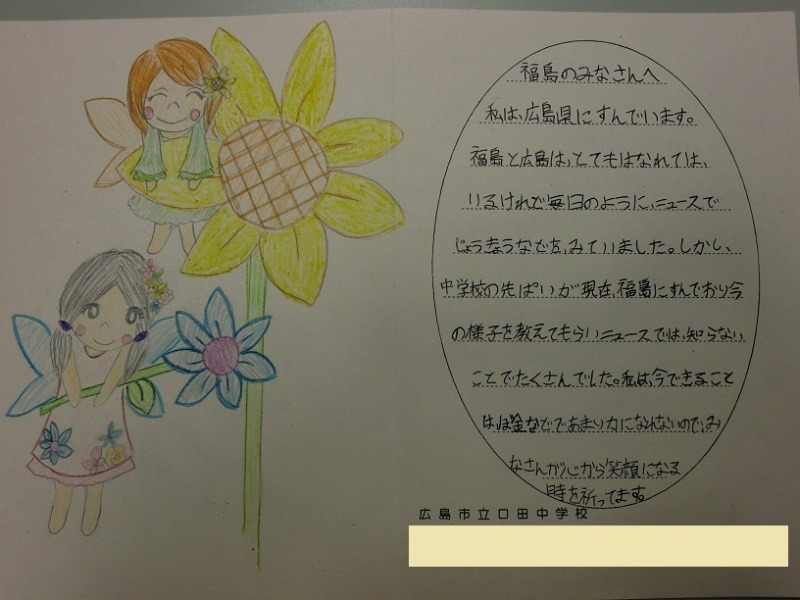 福島のみなさんへ
私は、広島県にすんでいます。
福島と広島は、とてもはなれては、
いるけれど毎日のように、ニュースで
じょうきょうなどを、みていました。しかし、
中学校の先ぱいが現在、福島にすんでおり今
の様子を教えてもらいニュースでは、知らない
ことでたくさんでした。私は、今できること
はぼ金などであまり力になれないので、み
なさんが心から笑顔になる
時を祈ってます。
広島市立口田中学校